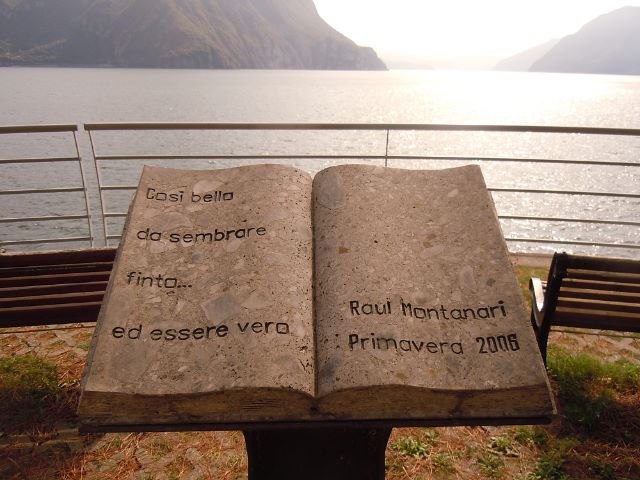 Così bella
da sembrare
finta...
ed essere vera
Raul Montanari
Primavera 2006